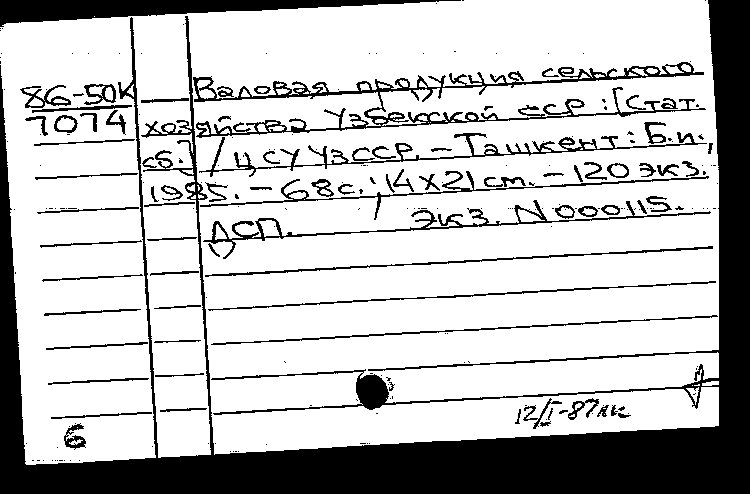 86-50К Валовая продукция сельского
7074 хозяйства Узбекской ССР : [Стат.
сб.] / ЦСУ УзССР. – Ташкент : Б.и.,
1985. – 68 с. ; 14 х 21 см. – 120 экз.
ДСП. Экз. N 000115.
12/I-87
6